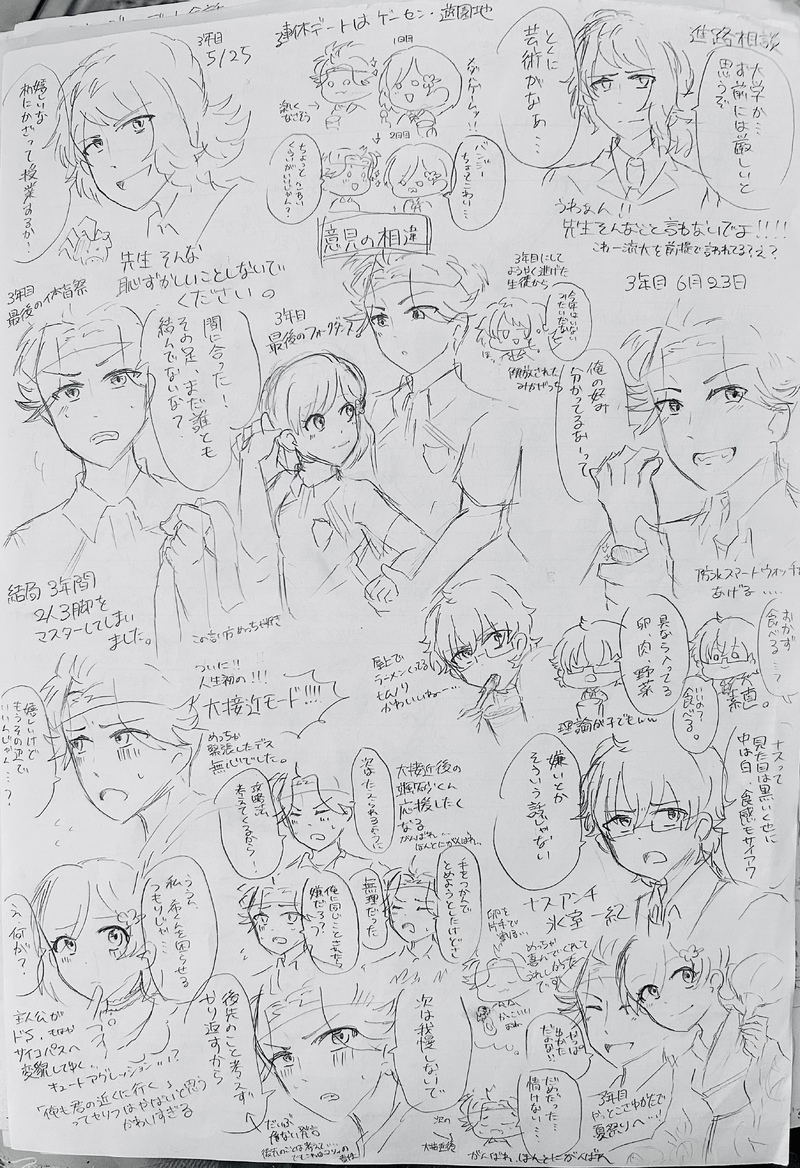 3年目
5/25
嬉しいな
机にかざって授業するか!
先生 そんな
恥ずかしいことしないで
ください。
連休デートは ゲーセン・遊園地
1日目
ダンスゲームァ!!
2日目
バンジー
ちょっとこわい…
ちょっとこわい
くらいがいいじゃん?
とくに
芸術がなぁ…
進路相談
大学か…
お前には厳しいと
思うぞ
うわぁん!!
先生そんなこと言わないでよ!!!!
これ一流大を前提で言われてる?え?
意見の相違
3年目
最後の体育祭!
間に合った!
その足、まだ誰とも
結んでないな?
3年目
最後のフォークダンス
3年目にして
ようやく逃げた
生徒から
解放された
みかげっち
3年目 6月23日
俺の好み
分かってるなーって
防水スマートウォッチ
あげる….
結局 3年間
2人3脚を
マスターしてしまい
ました。
この言い方めっちゃ好き
屋上で
ラーメンくってる
かわいいね…
具なら入ってる
卵、肉、野菜
理論が子どもww
おかず
食べる…?
いいの?
食べる。
ナスって
見た目は黒いくせに
中は白、食感もサイアク
嫌いとか
そういう話じゃない
ナスアンチ
氷室一紀
ついに!!
人生初の!!!
大接近モード!!!!
めっちゃ
緊張したデス
無心でした。
嬉しいけど
もうその辺で
いいんじゃん…?
次はたえられるように
攻略法、
考えてくるから!
大接近後の
颯砂くん
応援したく
なる
がんばれ、
ほんとにがんばれ、
手をつかんで
とめようとしたけどさ
無理だった
俺に同じことされたら
嫌だろ?
ううん、
私、希くんを困らせる
つもりじゃ…
え、何が?
主人公が
ドS、もはや
サイコパスへ
変貌してゆく…
キュートアグレッション!?
「俺も君の近くに行く」
ってセリフはやばいと思う
かわいすぎる
次は我慢しないで
後先のこと考えず
やり返すから
卵を
片手で
割る…
めっちゃ
喜んでくれて
うれしかった
です
だめだった…
情けない…
3年目
やっとこさゆかたで
夏祭りへ…!
大接近後
がんばれ、ほんとにがんばれ